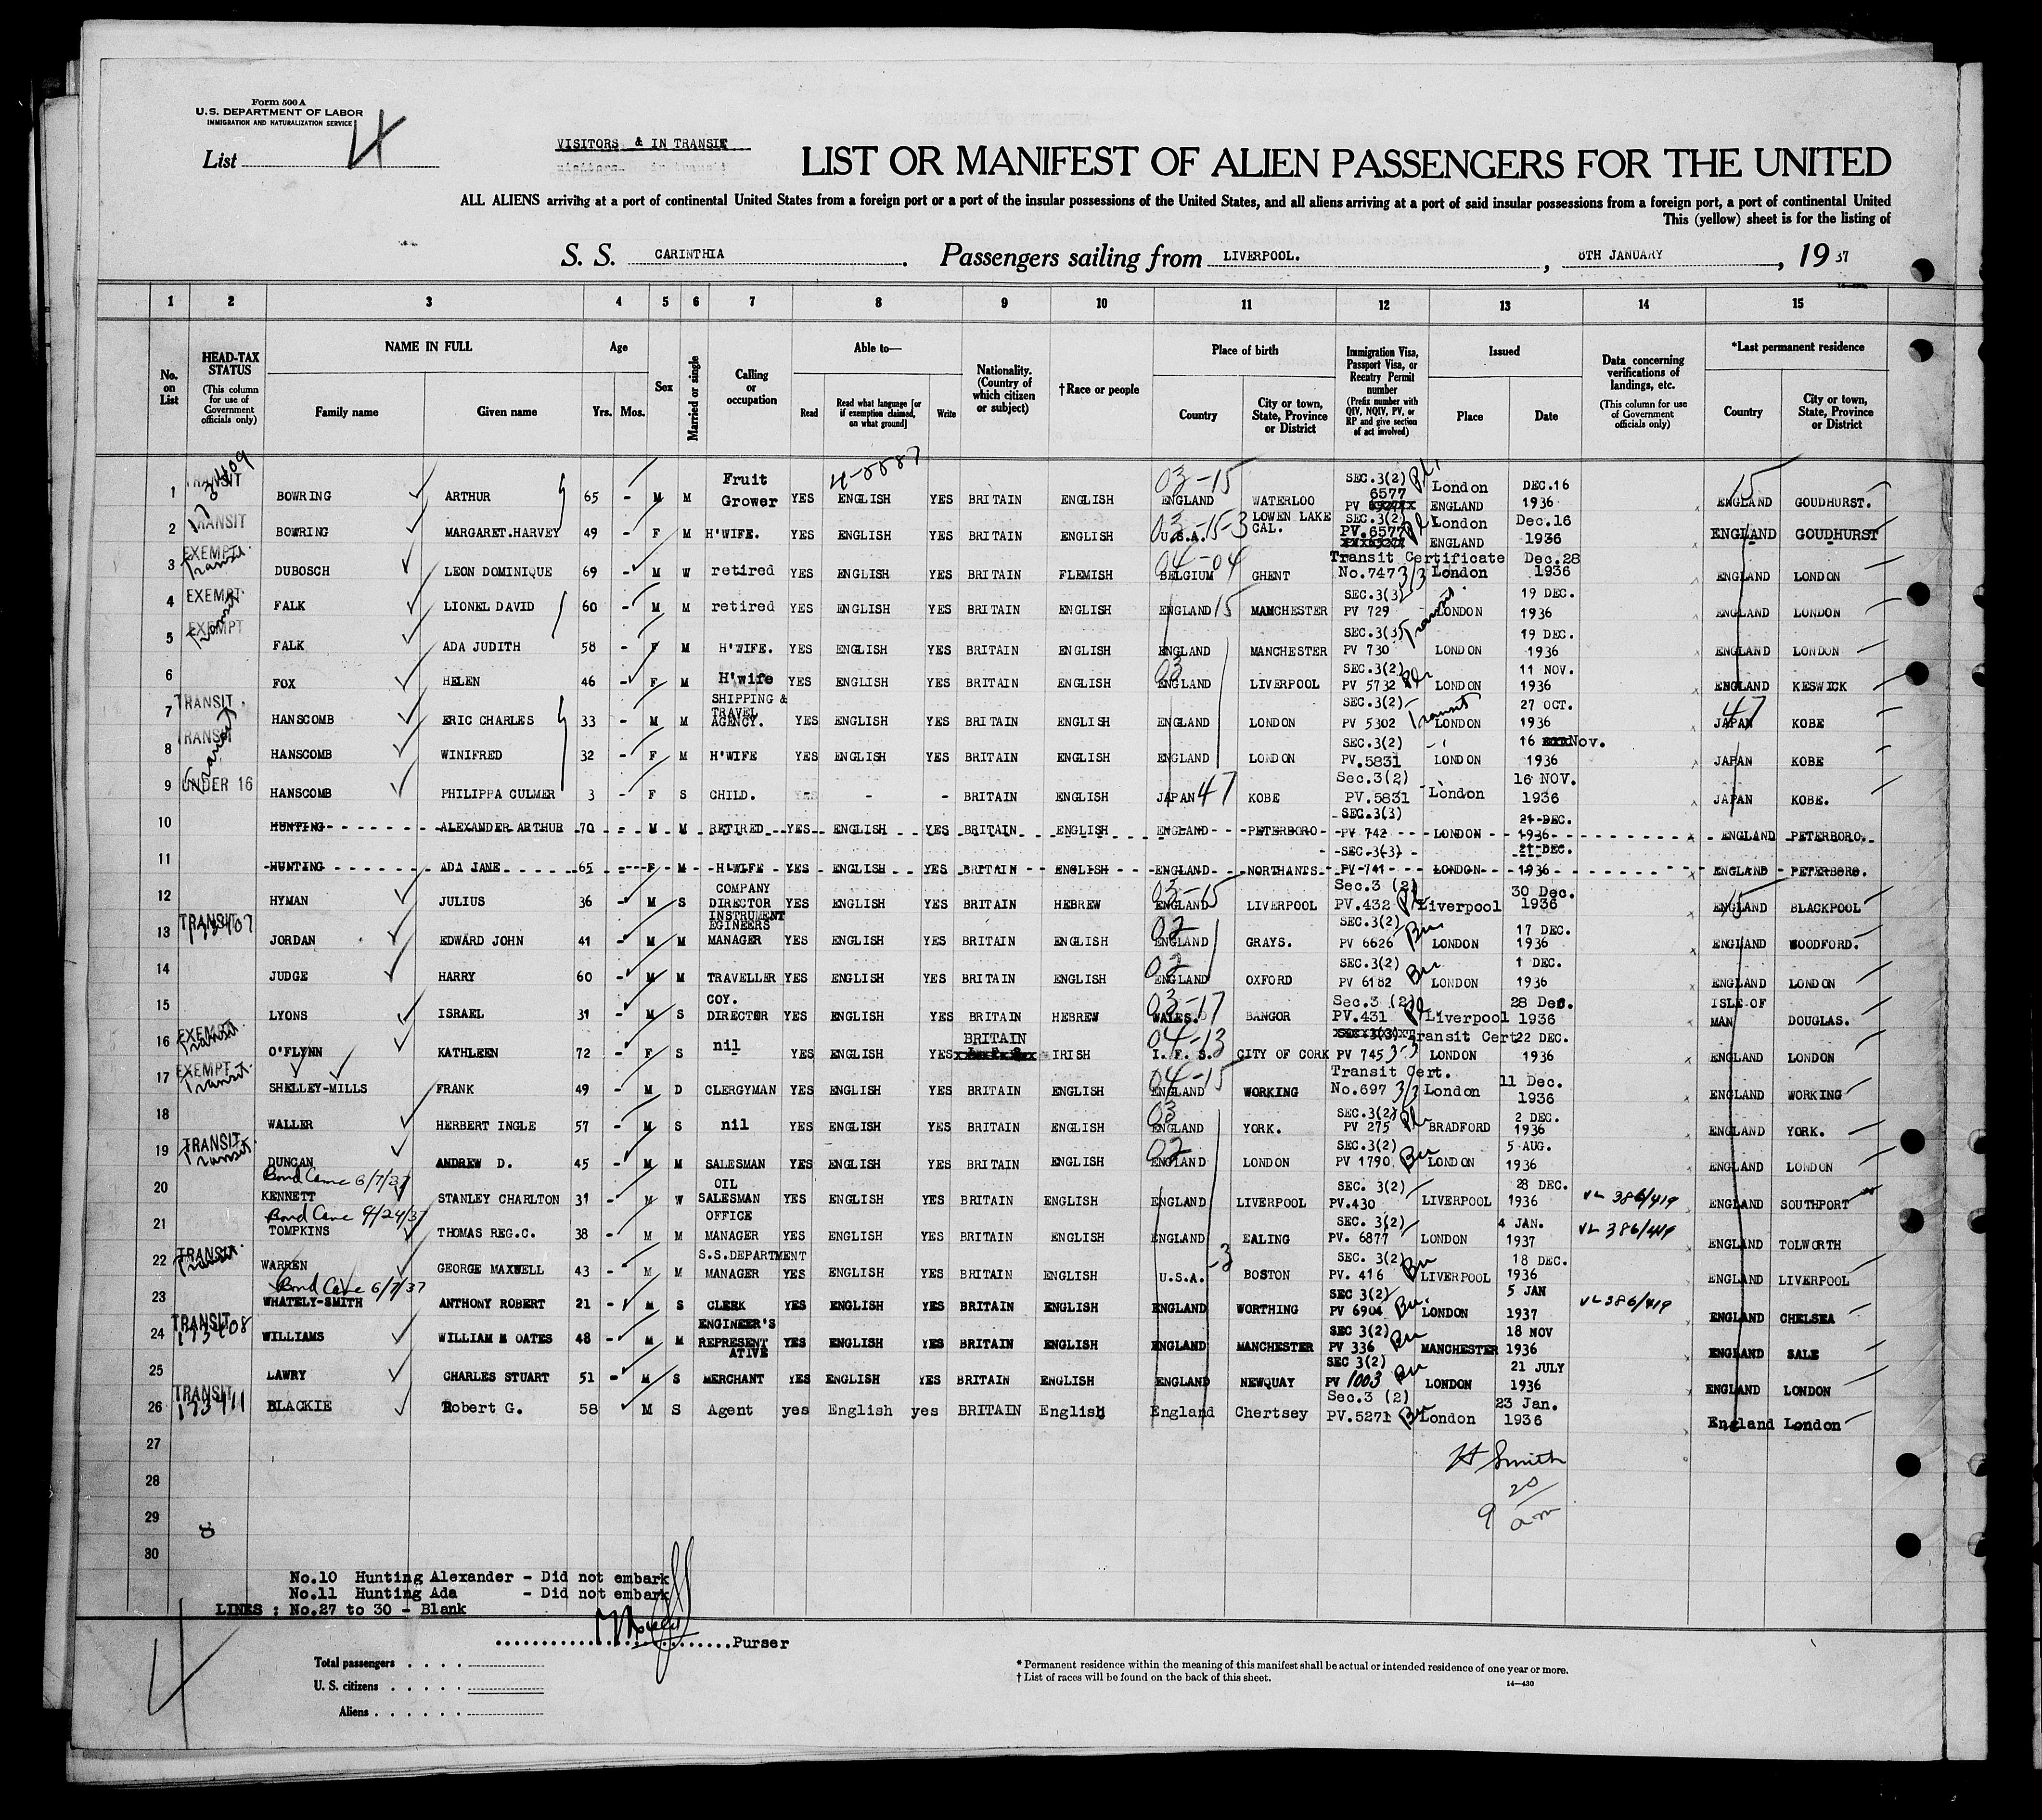 Form 500 A
U.S. DEPARTMENT OF LABOR
IMMIGRATION AND NATURALIZATION SERVICE
List 4
VISITORS & IN TRANSIT
LIST OR MANIFEST OF ALIEN PASSENGERS FOR THE UNITED
ALL ALIENS arriving at a port of continental United States from a foreign port or a port of the insular possessions of the United States, and all aliens arriving at a port of said insular possessions from a foreign port, a port of continental United
This (yellow) sheet is for the listing of
S. S. CARINTHIA. Passengers sailing from LIVERPOOL., 8TH JANUARY, 1937
1 2 3 4 5 6 7 8 9 10 11 12 13 14 15
No. on List
HEAD-TAX STATUS (This column for use of Government officials only)
NAME IN FULL Family name Given name
Age Yrs. Mos.
Sex
Married or single
Calling or occupation
Able to— Read Read what language [or if exemption claimed, on what ground] Write
Nationality. (Country of which citizen or subject)
†Race or people
Place of birth Country City or town, State, Province or District
Immigration Visa, Passport Visa, or Reentry Permit number (Prefix number with QIV, NQIV, PV, or RP and give section of act involved)
Issued Place Date
Data concerning verifications of landings, etc. (This column for use of Government officials only)
*Last permanent residence Country City or town, State, Province or District
4-5587
1 TRANSIT BOWRING ARTHUR 65 - M M Fruit Grower YES ENGLISH YES BRITAIN ENGLISH 03-15 ENGLAND WATERLOO SEC.3(2) PV 6577 London ENGLAND DEC.16 1936 15 ENGLAND GOUDHURST.
2 TRANSIT BOWRING MARGARET.HARVEY 49 - F M H'WIFE. YES ENGLISH YES BRITAIN ENGLISH 03-15-3 U.S.A. LOWEN LAKE CAL. SEC.3(2) PV.6577 London ENGLAND Dec.16 1936 ENGLAND GOUDHURST
3 EXEMPT Transit DUBOSCH LEON DOMINIQUE 69 - M W retired YES ENGLISH YES BRITAIN FLEMISH 04-04 BELGIUM GHENT Transit Certificate No.747 3/3 London Dec.28 1936 ENGLAND LONDON
4 EXEMPT Transit FALK LIONEL DAVID 60 - M M retired YES ENGLISH YES BRITAIN ENGLISH ENGLAND 15 MANCHESTER SEC.3(3) PV 729 Transit LONDON 19 DEC. 1936 ENGLAND LONDON
5 EXEMPT FALK ADA JUDITH 58 - F M H'WIFE. YES ENGLISH YES BRITAIN ENGLISH ENGLAND MANCHESTER SEC.3(3) PV 730 LONDON 19 DEC. 1936 ENGLAND LONDON
6 FOX HELEN 46 - F M H'wife YES ENGLISH YES BRITAIN ENGLISH 03 ENGLAND LIVERPOOL SEC.3(2) PV 5732 LONDON 11 NOV. 1936 ENGLAND KESWICK
7 TRANSIT HANSCOMB ERIC CHARLES 33 - M M SHIPPING & TRAVEL AGENCY. YES ENGLISH YES BRITAIN ENGLISH ENGLAND LONDON SEC.3(2) PV 5302 Transit LONDON 27 OCT. 1936 47 JAPAN KOBE
8 TRANSIT Transit HANSCOMB WINIFRED 32 - F M H'WIFE YES ENGLISH YES BRITAIN ENGLISH ENGLAND LONDON SEC.3(2) PV.5831 LONDON 16 Nov. 1936 JAPAN KOBE
9 UNDER 16 HANSCOMB PHILIPPA CULMER 3 - F S CHILD. - - BRITAIN ENGLISH JAPAN 47 KOBE Sec.3(2) PV.5831 London 16 NOV. 1936 JAPAN KOBE.
10 HUNTING ALEXANDER ARTHUR 70 - M M RETIRED YES ENGLISH YES BRITAIN ENGLISH ENGLAND PETERBORO SEC.3(3) PV 742 LONDON 21 DEC. 1936 ENGLAND PETERBORO.
11 HUNTING ADA JANE 65 - F M H'WIFE YES ENGLISH YES BRITAIN ENGLISH ENGLAND NORTHANTS SEC.3(3) PV 741 LONDON 21 DEC. 1936 ENGLAND PETERBORO.
12 HYMAN JULIUS 36 - M S COMPANY DIRECTOR YES ENGLISH YES BRITAIN HEBREW 03-15 ENGLAND LIVERPOOL Sec.3 (2) PV.432 Liverpool 30 Dec. 1936 15 ENGLAND BLACKPOOL
13 TRANSIT 173407 JORDAN EDWARD JOHN 41 - M M INSTRUMENT EGINEERS MANAGER YES ENGLISH YES BRITAIN ENGLISH 02 ENGLAND GRAYS. SEC.3(2) PV 6626 LONDON 17 DEC. 1936 ENGLAND WOODFORD.
14 JUDGE HARRY 60 - M M TRAVELLER YES ENGLISH YES BRITAIN ENGLISH 02 ENGLAND OXFORD SEC.3(2) PV 6182 LONDON 1 DEC. 1936 ENGLAND LONDON
15 LYONS ISRAEL 31 - M S COY. DIRECTOR YES ENGLISH YES BRITAIN HEBREW 03-17 WALES. BANGOR Sec.3 (2) PV.431 Liverpool 28 Dec. 1936 ISLE OF MAN DOUGLAS.
16 EXEMPT Transit O'FLYNN KATHLEEN 72 - F S nil YES ENGLISH YES BRITAIN IRISH 04-13 I. F. S. CITY OF CORK Transit Cert. PV 745 3-3 LONDON 22 DEC. 1936 ENGLAND LONDON
17 EXEMPT Transit SHELLEY-MILLS FRANK 49 - M D CLERGYMAN YES ENGLISH YES BRITAIN ENGLISH 04-15 ENGLAND WORKING Transit Cert. No.697 3/3 London 11 Dec. 1936 ENGLAND WORKING
18 WALLER HERBERT INGLE 57 - M S nil YES ENGLISH YES BRITAIN ENGLISH 03 ENGLAND YORK. SEC.3(2) PV 275 BRADFORD 2 DEC. 1936 ENGLAND YORK.
19 TRANSIT Transit DUNCAN ANDREW D. 45 - M M SALESMAN YES ENGLISH YES BRITAIN ENGLISH 02 ENGLAND LONDON SEC.3(2) PV 1790 LONDON 5 AUG. 1936 ENGLAND LONDON
20 Bond Canc 6/7/37 KENNETT STANLEY CHARLTON 31 - M W OIL SALESMAN YES ENGLISH YES BRITAIN ENGLISH ENGLAND LIVERPOOL SEC. 3(2) PV.430 LIVERPOOL 28 DEC. 1936 VL 386/419 ENGLAND SOUTHPORT
21 Bond Canc 4/24/37 TOMPKINS THOMAS REG.C. 38 - M M OFFICE MANAGER YES ENGLISH YES BRITAIN ENGLISH ENGLAND EALING SEC. 3(2) PV. 6877 LONDON 4 JAN. 1937 VL 386/419 ENGLAND TOLWORTH
22 TRANSIT Transit WARREN GEORGE MAXWELL 43 - M M S.S.DEPARTMENT MANAGER YES ENGLISH YES BRITAIN ENGLISH U.S.A. -3 BOSTON SEC. 3(2) PV. 416 LIVERPOOL 18 DEC. 1936 ENGLAND LIVERPOOL
23 Bond Canc 6/7/37 WHATELY-SMITH ANTHONY ROBERT 21 - M S CLERK YES ENGLISH YES BRITAIN ENGLISH ENGLAND WORTHING SEC 3(2) PV 6904 LONDON 5 JAN 1937 VL 386/419 ENGLAND CHELSEA
24 TRANSIT 173408 WILLIAMS WILLIAM M OATES 48 - M M ENGINEER'S REPRESENTATIVE YES ENGLISH YES BRITAIN ENGLISH ENGLAND MANCHESTER SEC 3(2) PV 336 MANCHESTER 18 NOV 1936 ENGLAND SALE
25 LAWRY CHARLES STUART 51 - M S MERCHANT YES ENGLISH YES BRITAIN ENGLISH ENGLAND NEWQUAY SEC 3(2) PV 1003 LONDON 21 JULY 1936 ENGLAND LONDON
26 TRANSIT 173411 BLACKIE Robert G. 58 M S Agent yes English yes BRITAIN English England Chertsey Sec.3 (2) PV.5271 London 23 Jan. 1936 England London
27
28
29
30
H Smith
9 20 am
8
No.10 Hunting Alexander - Did not embark
No.11 Hunting Ada - Did not embark
LINES : No.27 to 30 - Blank
Purser
4
Total passengers
U. S. citizens
Aliens
* Permanent residence within the meaning of this manifest shall be actual or intended residence of one year or more.
† List of races will be found on the back of this sheet.
14—430